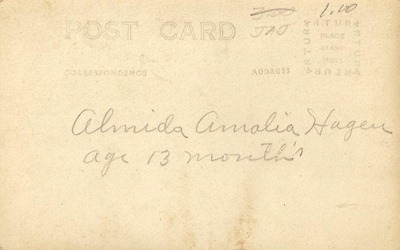 1.00
POST CARD
CORRESPONDENCE
ADDRESS
ARTURA
PLACE
STAMP
HERE
ARTURA
Almida Amalia Hagen
age 13 months